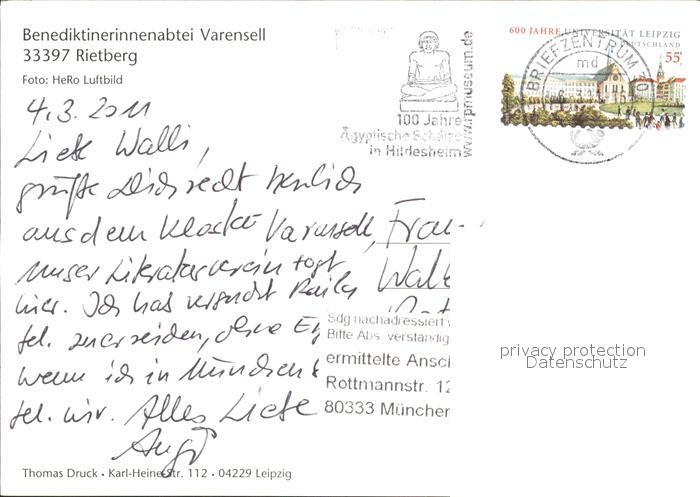 Benediktinerinnenabtei Varensell
33397 Rietberg
Foto: HeRo Luftbild
4.3.2011
Liebe Walli,
grüße Dich recht herzlich
aus dem Kloster Varensell,
unser Literaturverein tagt
hier. Ich hab versucht
tel. zu erreichen, ohne
wenn ich in München
tel. wir. Alles Liebe
www.rpmuseum.de
100 Jahre
Ägyptische Schätze
in Hildesheim
600 JAHRE UNIVERSITÄT LEIPZIG
DEUTSCHLAND
55
BRIEFZENTRUM
md
Frau
Sdg nachadressiert
Bitte Abs. verständig
ermittelte Ansc
Rottmannstr. 12
80333 München
privacy protection
Datenschutz
Thomas Druck • Karl-Heine-Str. 112 • 04229 Leipzig